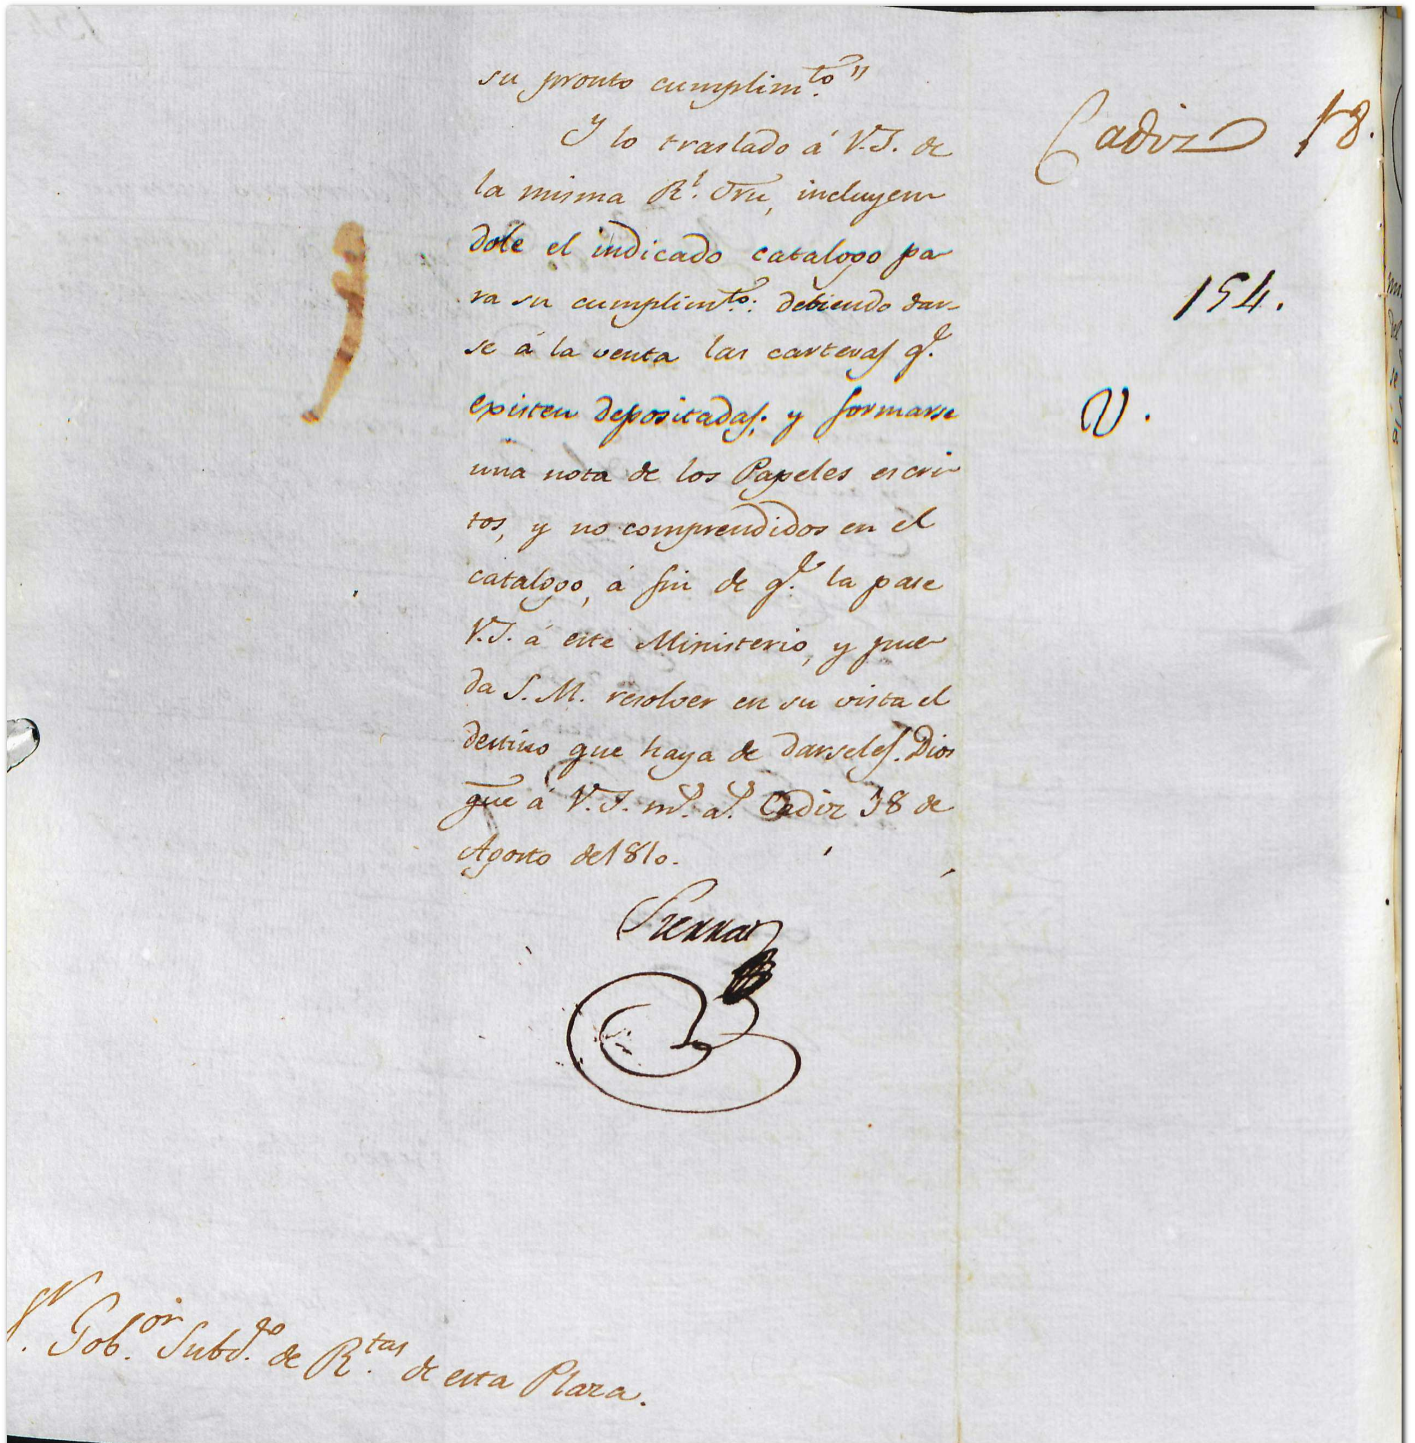 su pronto cumplim.to"
Y lo traslado á V.S. de
la misma R.l Orn, incluyen-
dole el indicado catalogo pa-
ra su cumplim.to: debiendo dar-
se á la venta las carteras q.e
existen depositadas; y formarse
una nota de los Papeles escri-
tos, y no comprendidos en el
catalogo, á fin de q.e la pase
V.S. á este Ministerio, y pue-
da S.M. resolver en su vista el
destino que haya de darseles. Dios
gue á V.S. m.s a.s Cadiz 18 de
Agosto de 1810.
Sierra
S.r Gob.or Subd.do de R.tas de esta Plaza.
Cadiz 18.
154.
V.